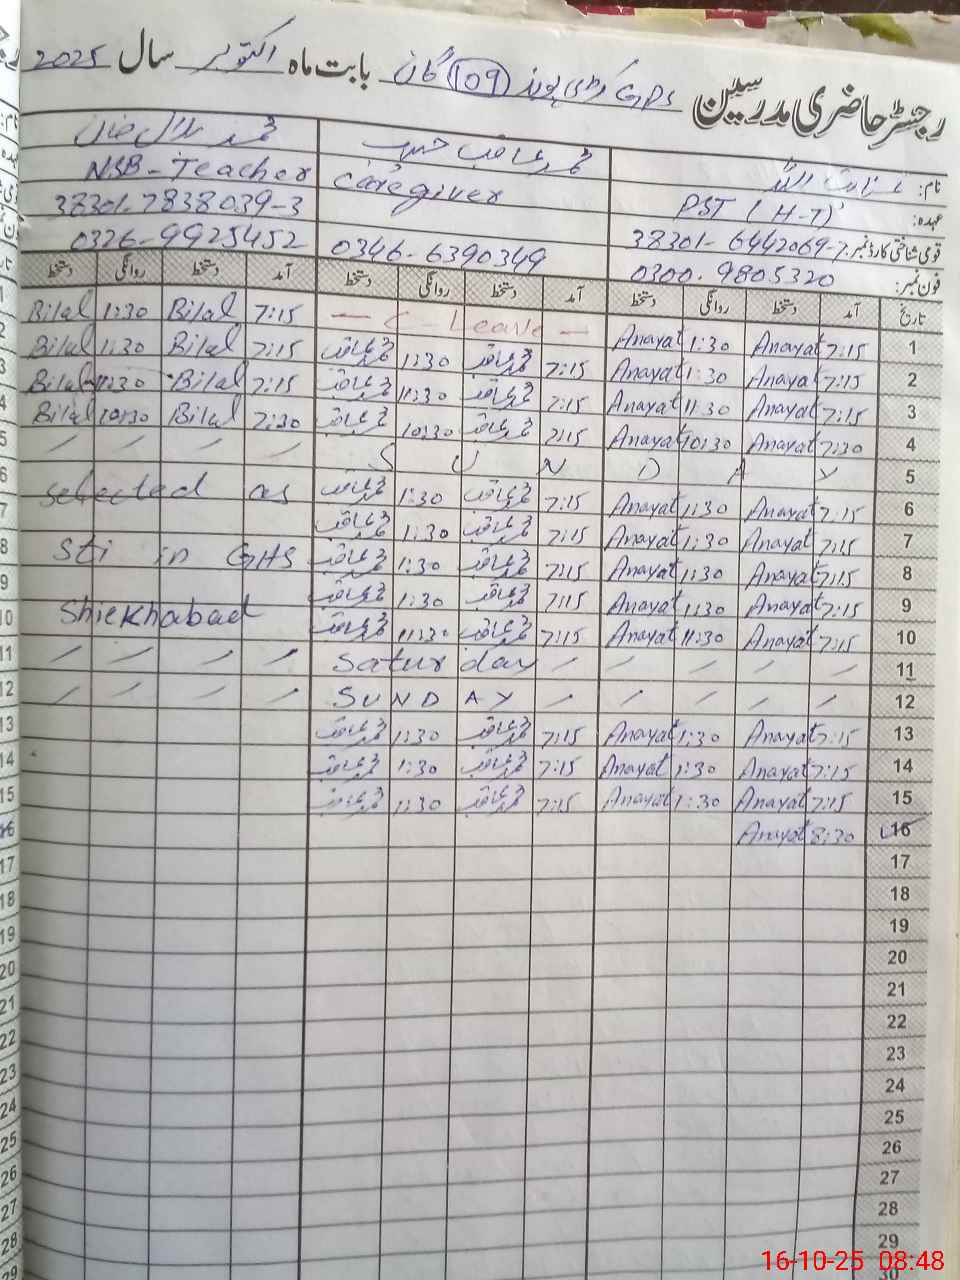 رجسٹر حاضری مدرسین GPS 109 بابت ماہ اکتوبر سال 2025
نام: عنایت اللہ محمد عاقب حسیب محمد بلال خان
عہدہ: PST (H-T) Caregiver NSB-Teacher
قومی شناختی کارڈ نمبر: 38301-6442069-7 38301-7838039-3
فون نمبر: 0300-9805320 0346-6390349 0326-9925452
تاریخ آمد دستخط روانگی دستخط آمد دستخط روانگی دستخط آمد دستخط روانگی دستخط
1 7:15 Anayat 1:30 Anayat — C-Leave — 7:15 Bilal 1:30 Bilal
2 7:15 Anayat 1:30 Anayat 7:15 محمد عاقب 1:30 محمد عاقب 7:15 Bilal 1:30 Bilal
3 7:15 Anayat 11:30 Anayat 7:15 محمد عاقب 11:30 محمد عاقب 7:15 Bilal 11:30 Bilal
4 7:30 Anayat 10:30 Anayat 7:15 محمد عاقب 10:30 محمد عاقب 7:30 Bilal 10:30 Bilal
5 S U N D A Y
6 7:15 Anayat 1:30 Anayat 7:15 محمد عاقب 1:30 محمد عاقب selected as
7 7:15 Anayat 1:30 Anayat 7:15 محمد عاقب 1:30 محمد عاقب
8 7:15 Anayat 1:30 Anayat 7:15 محمد عاقب 1:30 محمد عاقب Sti in GHS
9 7:15 Anayat 1:30 Anayat 7:15 محمد عاقب 1:30 محمد عاقب
10 7:15 Anayat 11:30 Anayat 7:15 محمد عاقب 11:30 محمد عاقب Shiekhabad
11 Saturday
12 SUNDAY
13 7:15 Anayat 1:30 Anayat 7:15 محمد عاقب 1:30 محمد عاقب
14 7:15 Anayat 1:30 Anayat 7:15 محمد عاقب 1:30 محمد عاقب
15 7:15 Anayat 1:30 Anayat 7:15 محمد عاقب 1:30 محمد عاقب
16 8:30 Anayat
17
18
19
20
21
22
23
24
25
26
27
28
29
30
16-10-25 08:48